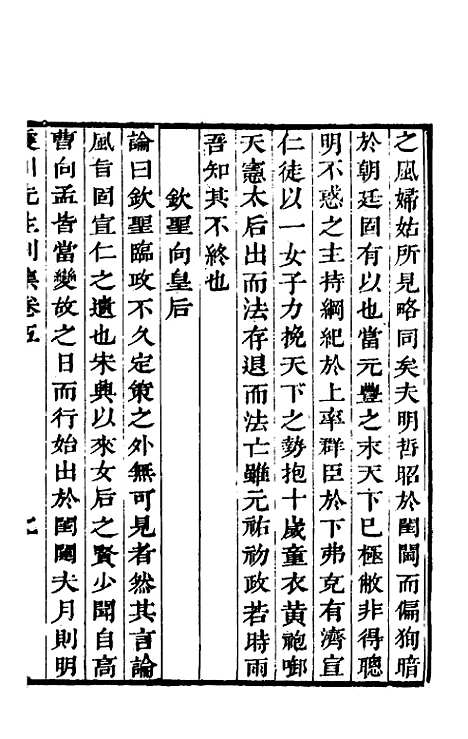 之風婦姑所見略同矣夫明哲昭於閨闥而偏狥暗
於朝廷固有以也當元豐之末天下已極敝非得聰
明不惑之主持綱紀於上率群臣於下弗克有濟宣
仁徒以一女子力挽天下之勢抱十歲童衣黃袍啣
天憲太后出而法存退而法亡雖元祐初政若時雨
吾知其不終也
欽聖向皇后
論曰欽聖臨政不久定策之外無可見者然其言論
風旨固宣仁之遺也宋興以來女后之賢少聞自高
曹向孟皆當變故之日而行始出於閨闥夫月則明
震川先生別集卷五
九